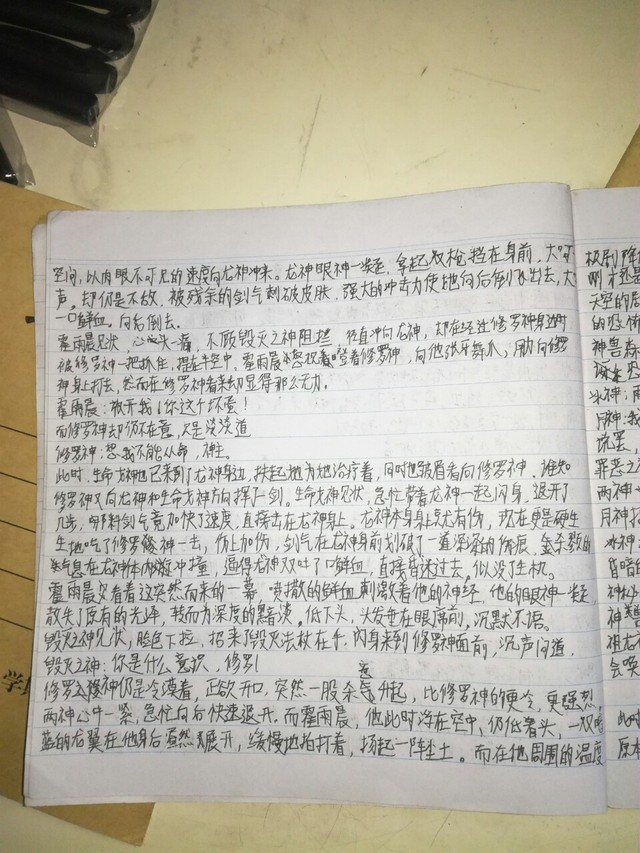 空间，以肉眼不可见的速度向龙神冲来。龙神眼神一凝，拿起双枪挡在身前，大
声。却仍是不敌，被残余的剑气刺破皮肤，强大的冲击力使她向后倒飞出去，大
一口鲜血。向后倒去。
霍雨晨见状，心头一痛，不顾毁灭之神阻拦，径直冲向龙神，却在经过修罗神身边时
被修罗神一把抓住，提在半空中，霍雨晨怒瞪着修罗神，向他张牙舞爪，用力向修罗
神身上打去，然而在修罗神看来却显得那么无力。
霍雨晨：放开我！你这个坏蛋！
而修罗神却仍不在意，只是淡淡道
修罗神：恕我不能从命，神王。
此时，生命女神也已来到了龙神身边，扶起她为她治疗着，同时也皱眉看向修罗神。谁知
修罗神又向龙神和生命女神方向挥了一剑。生命女神见状，急忙带着龙神一起闪身，退开了
几步，哪料剑气竟加快了速度，直接击在龙神身上。龙神本身身上就有伤，现在更是硬生
生地吃了修罗神一击，伤上加伤，剑气在龙神身前划破了一道深深的伤痕，金杀戮的
气息在龙神体内碰撞，逼得龙神又吐了口鲜血，直接昏迷过去。似没了生机。
霍雨晨又看着这突然而来的一幕，喷撒的鲜血刺激着他的神经，他的眼神一凝
散失了原有的光泽，转而为深度的黑暗淡。低下头，头发垂在眼席前，沉默不语。
毁灭之神见状，脸色下拉，招来了毁灭法杖在手，闪身来到修罗神面前，沉声问道。
毁灭之神：你是什么意识、修罗！
修罗之神仍是冷漠着，正欲开口，突然一股杀意升起，比修罗神的更冷，更强烈，
两神心中一紧，急忙向后快速退开。而霍雨晨，他此时浮在空中，仍低着头，一双
蓝的龙翼在他身后显然展开，缓慢地拍打着，扬起一阵尘土。而在他周围的温度
极剧降
刚才还是
天空的
神兽森
冰神：雨
月神：我
说罢，
罪恶之
两神一
月神
冰神：
昏暗的
神
神兽
祖龙
会唤
此时
原
学